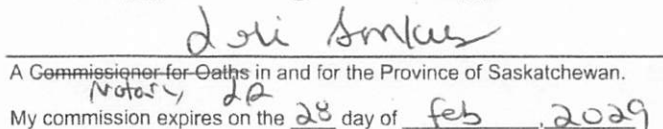 A Commissioner for Oaths in and for the Province of Saskatchewan.
Notary
My commission expires on the 28 day of feb, 2029